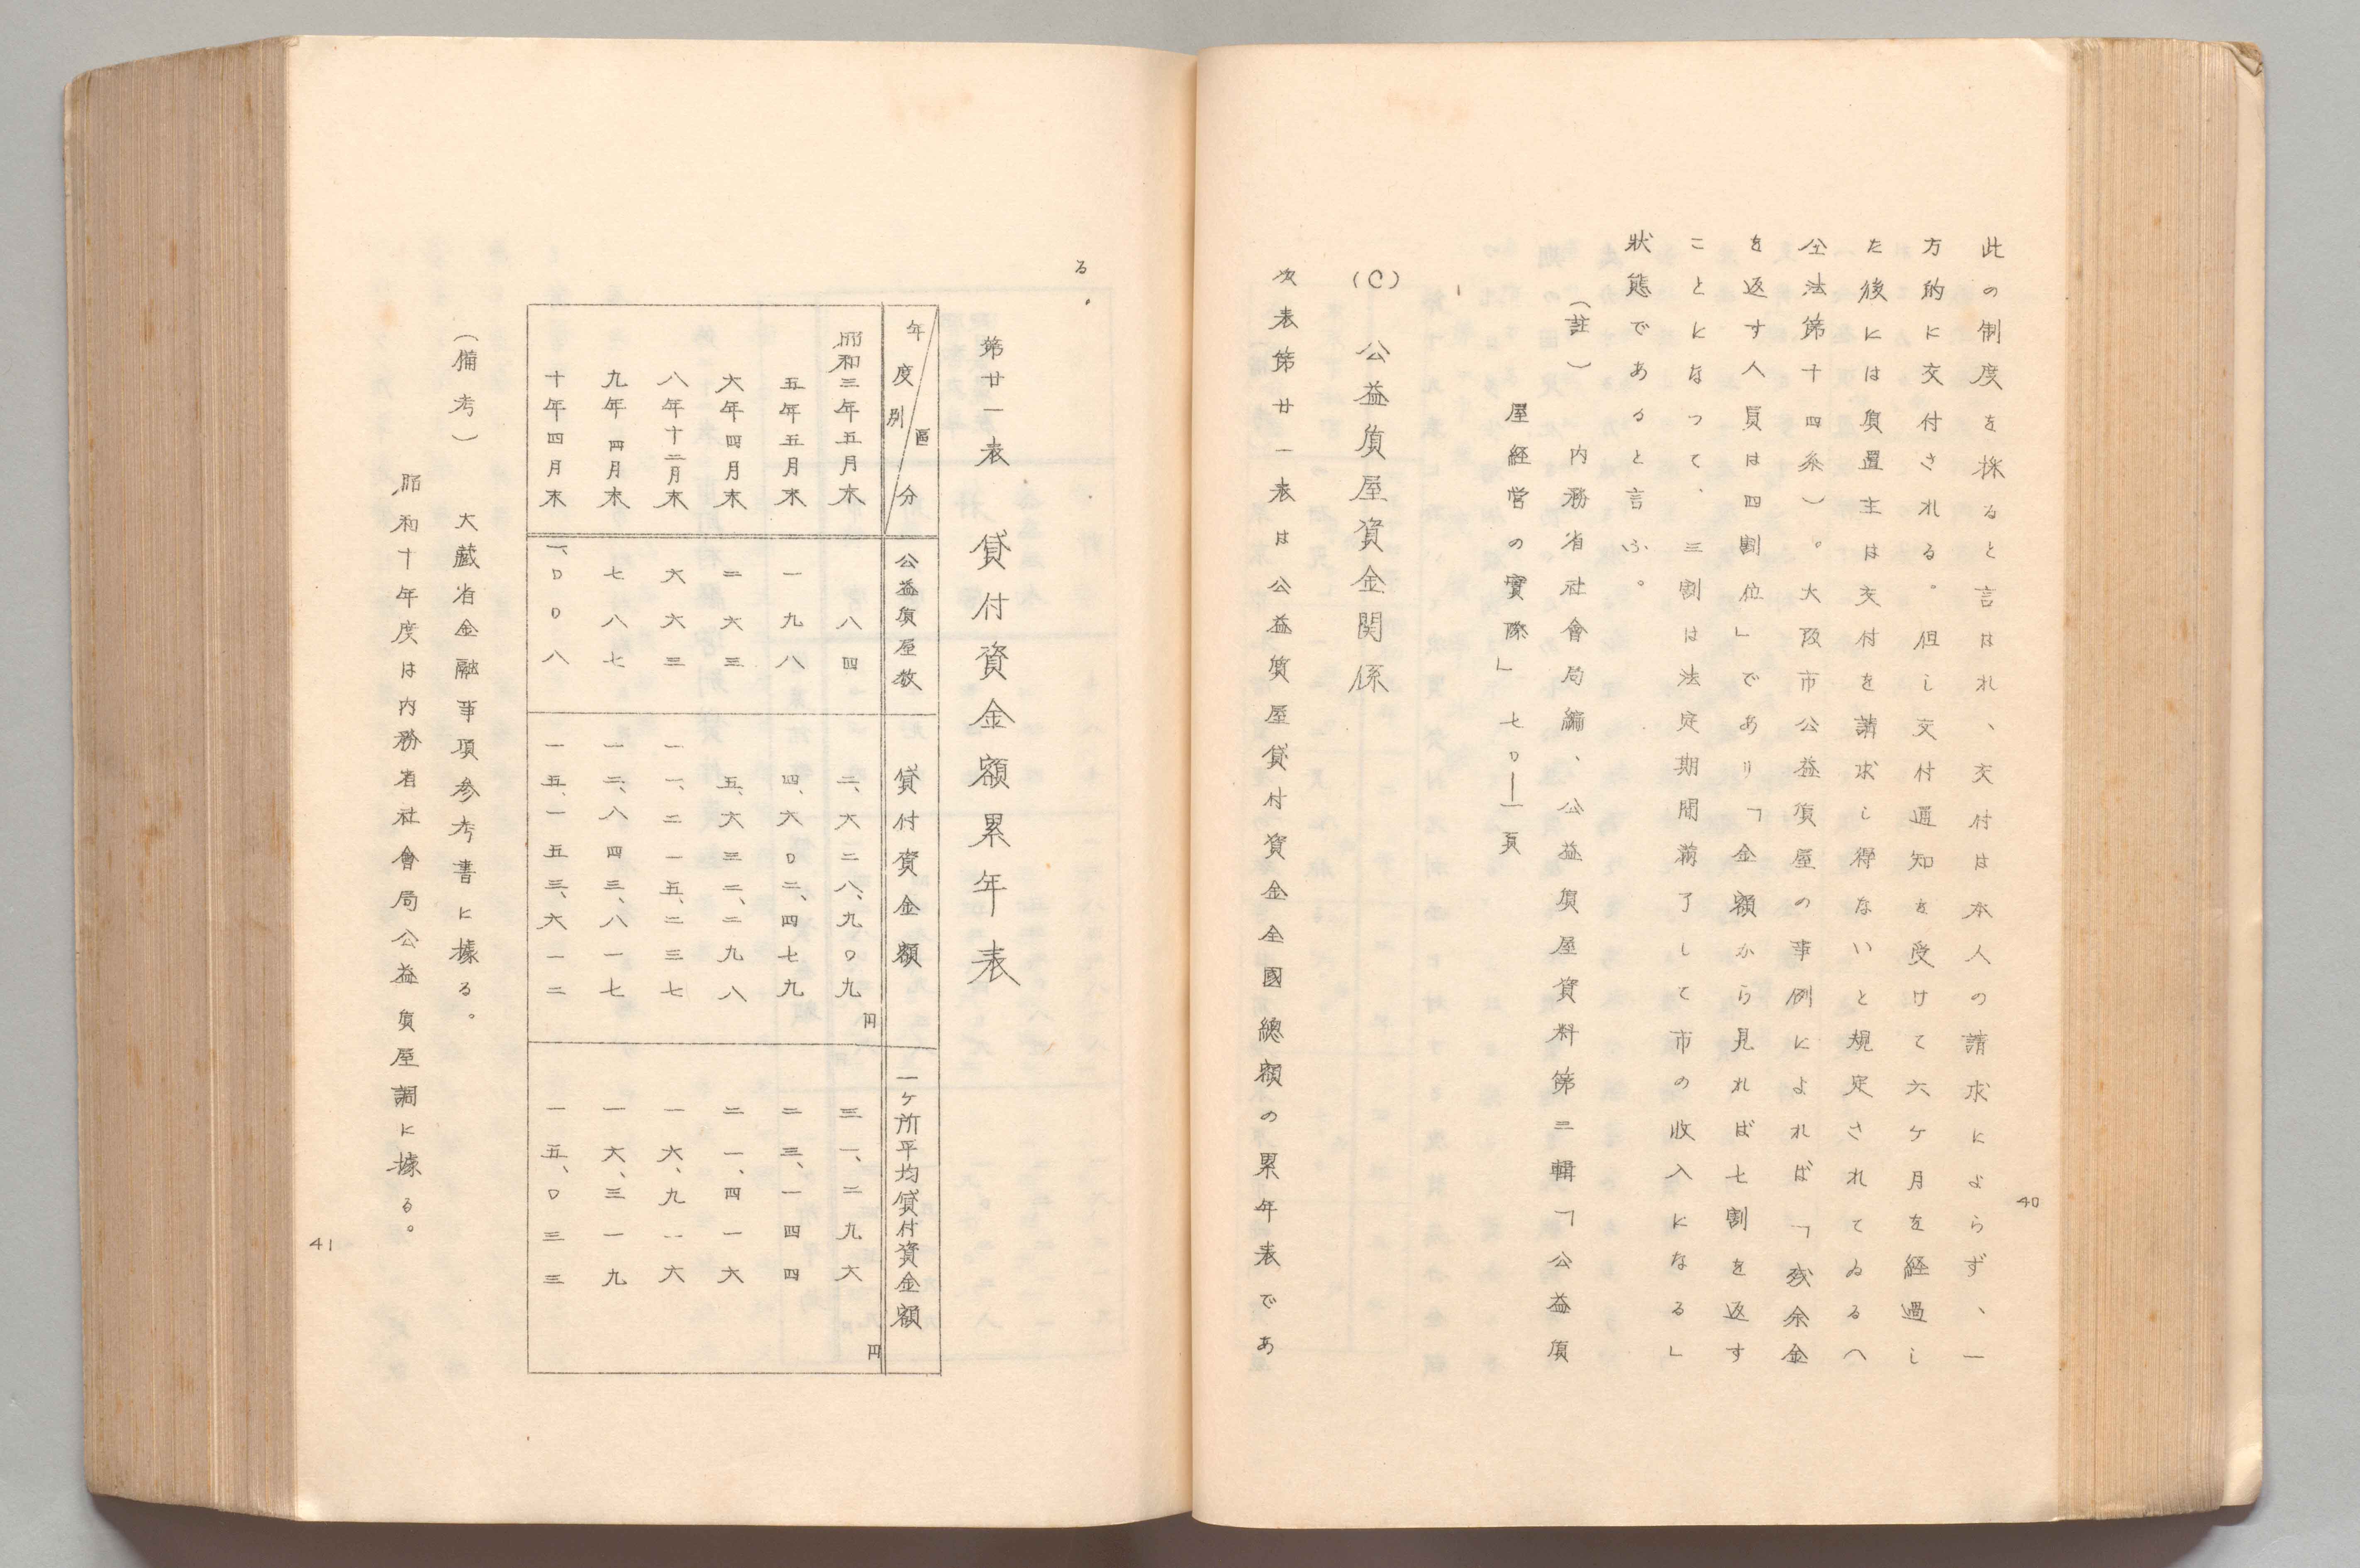 此の制度を採ると言はれ、交付は本人の請求によらず、一
方的に交付される。但し交付通知を受けて六ケ月を経過し
た後には質置主は交付を請求し得ないと規定されてゐるへ
仝法第十四条）。大阪市公益質屋の事例によれば「残余金
を返す人員は四割位」であり「金額から見れば七割を返す
ことになって、三割は法定期間満了して市の收入になる」
狀態であると言ふ。
（註）　内務省社會局編、公益質屋資料第二輯「公益質
屋経営の實際」七〇―一頁
(C)　公益質屋資金関係
次表第廿一表は公益質屋貸付資金全國總額の累年表であ
40
る.
第廿一表　貸付資金額累年表
年度別　區分　公益質屋数　貸付資金額　一ケ所平均貸付資金額
昭和三年五月末　八四　二、六二八、九〇九円　三一、二九六円
五年五月末　一九八　四、六〇二、四七九　二三、一四四
六年四月末　二六三　五、六三二、二九八　二一、四一六
八年十二月末　六六三　一一、二一五、二三七　一六、九一六
九年四月末　七八七　一二、八四三、八一七　一六、三一九
十年四月末　一、〇〇八　一五、一五三、六一二　一五、〇三三
（備考）　大藏省金融事項参考書に據る。
昭和十年度は内務省社會局公益質屋調に據る。
41